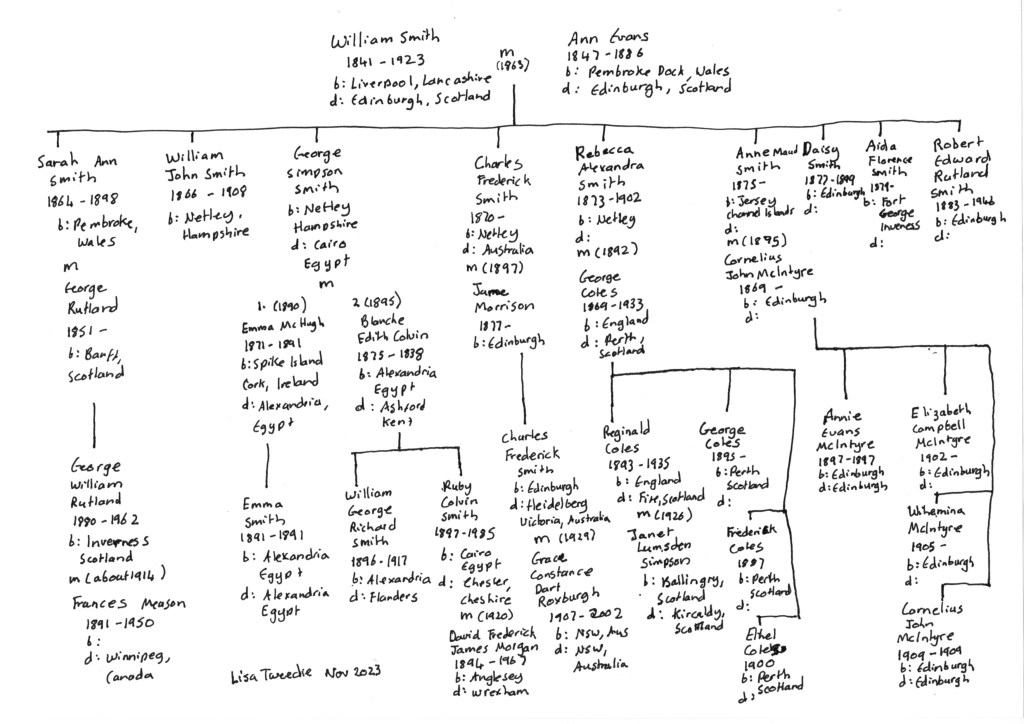 William Smith
1841 - 1923
b: Liverpool, Lancashire
d: Edinburgh, Scotland
m
(1863)
Ann Evans
1847 - 1886
b: Pembroke Dock, Wales
d: Edinburgh, Scotland
Sarah Ann
Smith
1864 - 1898
b: Pembroke,
Wales
m
George
Rutland
1851 -
b: Banff,
Scotland
George
William
Rutland
1880 - 1962
b: Inverness
Scotland
m (about 1914)
Frances Meason
1891 - 1950
b:
d: Winnipeg,
Canada
William
John Smith
1866 - 1908
b: Netley,
Hampshire
George
Simpson
Smith
b: Netley
Hampshire
d: Cairo
Egypt
m
1. (1890)
Emma McHugh
1871 - 1891
b: Spike Island
Cork, Ireland
d: Alexandria,
Egypt
2 (1895)
Blanche
Edith Colvin
1875 - 1938
b: Alexandria
Egypt
d: Ashford
Kent
Emma
Smith
1891 - 1891
b: Alexandria
Egypt
d: Alexandria
Egypt
William
George
Richard
Smith
1896 - 1917
b: Alexandria
d: Flanders
Ruby
Colvin
Smith
1897 - 1985
b: Cairo
Egypt
d: Chester,
Cheshire
m (1920)
David Frederick
James Morgan
1894 - 1967
b: Anglesey
d: Wrexham
Charles
Frederick
Smith
1870 -
b: Netley
d: Australia
m (1897)
Jane
Morrison
1877 -
b: Edinburgh
Charles
Frederick
Smith
b: Edinburgh
d: Heidelberg
Victoria, Australia
m (1929)
Grace
Constance
Dart
Roxburgh
1907 - 2002
b: NSW, Aus
d: NSW,
Australia
Rebecca
Alexandra
Smith
1873 - 1902
b: Netley
d:
m (1892)
George
Coles
1869 - 1933
b: England
d: Perth,
Scotland
Reginald
Coles
1893 - 1935
b: England
d: Fife, Scotland
m (1926)
Janet
Lumsden
Simpson
b: Ballingry,
Scotland
d: Kircaldy,
Scotland
George
Coles
1895 -
b: Perth
Scotland
d:
Frederick
Coles
1897
b: Perth
Scotland
d:
Ethel
Coles
1900
b: Perth
Scotland
d:
Anne Maud
Smith
1875 -
b: Jersey
Channel Islands
d:
m (1895)
Cornelius
John McIntyre
1869 -
b: Edinburgh
d:
Annie
Evans
McIntyre
1897 - 1897
b: Edinburgh
d: Edinburgh
Elizabeth
Campbell
McIntyre
1902 -
b: Edinburgh
d:
Wilhemina
McIntyre
1905 -
b: Edinburgh
d:
Cornelius
John
McIntyre
1909 - 1909
b: Edinburgh
d: Edinburgh
Daisy
Smith
1877 - 1899
b: Edinburgh
d:
Aida
Florence
Smith
1879 -
b: Fort
George
Inverness
d:
Robert
Edward
Rutland
Smith
1883 - 1946
b: Edinburgh
d:
Lisa Tweedie Nov 2023